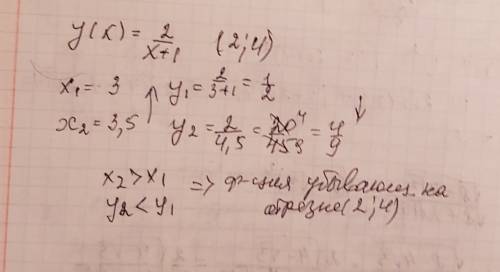 y(x) = 2/x+1 (2;4)
x₁ = 3 y₁ = 2/3+1 = 1/2
x₂ = 3,5 y₂ = 2/4,5 = 20⁴/45₉ = 4/9
x₂ > x₁ => ф-ция убывающ на
y₂ < y₁ отрезке (2;4)